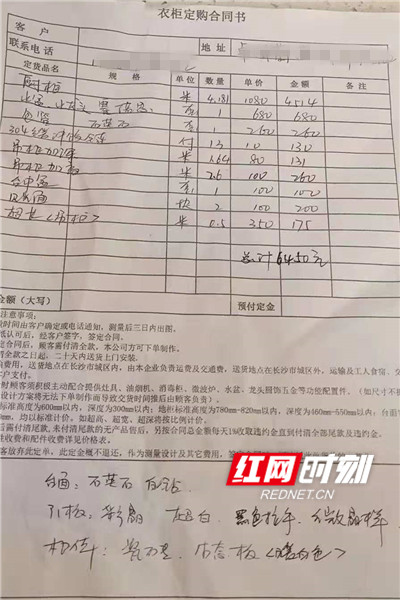 衣柜定购合同书
客 户
联系电话 地址
定货品名 规格 单位 数量 单价 金额 备注
橱柜 米 4.181 1080 4514
水盆 水龙头 1 680 680
石英石 1 260 260
304 付 13 10 130
吊柜加深 米 1.64 80 131
吊柜加高 米 2.6 100 260
1 100 100
块 2 100 200
(吊柜) 米 0.5 350 175
总计 6450元
金额（大写） 预付定金
注意事项：
时间由客户确定或电话通知，测量后三日内出图。
认可后，经客户签字，签定合同。
定合同后，顾客需付清全款，本公司方可下单制作。
清全款之日起，二十天内送货上门安装。
送货地点在长沙市城区内，由本企业负责运费及交通费，送货地点在长沙市城区外，运输及工人食宿、交
户支付。
时顾客须积极主动配合提供灶具、油烟机、消毒柜、微波炉、水盆、龙头圆饰五金等功能配置件。（如尺寸不
设计方案将无法下单制作而导致交货时间推后由顾客负责）
标准高度为600mm以内，深度为300mm以内；地柜标准高度为780mm-820mm以内，深度为460mm-550mm以内；台面
mm，均以标准计价。如超高、超宽、超深将按比例计价。
后需付清尾款，未付清尾款的无产品售后，另按合同总金额每天1%收取违约金直到付清全部尾款及违约金。
收费和配件收费详见价格表。
客放弃此定单，此定金概不退还，作为测量设计及其它费用，
红网时刻
REDNET.CN
台面：石英石 白钻
门板：彩晶 超白 黑色拉手
柜体： 生态板（暖白色）